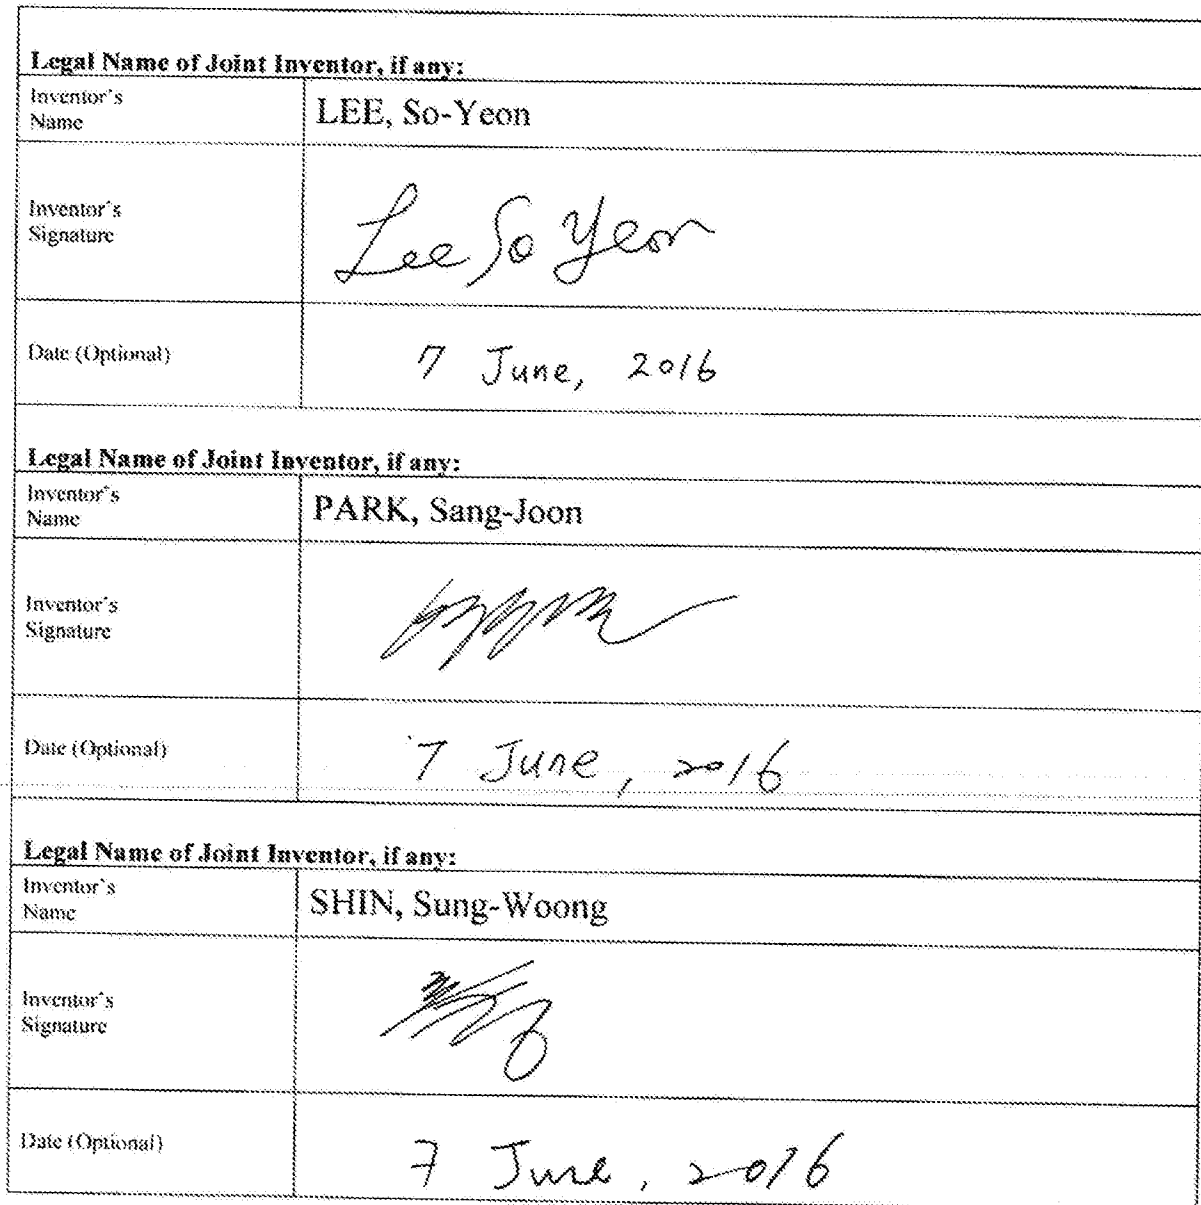 Legal Name of Joint Inventor, if any:
Inventor's
Name
LEE, So-Yeon
Inventor's
Signature
Lee So Yeon
Date (Optional)
7 June, 2016
Legal Name of Joint Inventor, if any:
Inventor's
Name
PARK, Sang-Joon
Inventor's
Signature
Date (Optional)
7 June, 2016
Legal Name of Joint Inventor, if any:
Inventor's
Name
SHIN, Sung-Woong
Inventor's
Signature
Date (Optional)
7 June, 2016